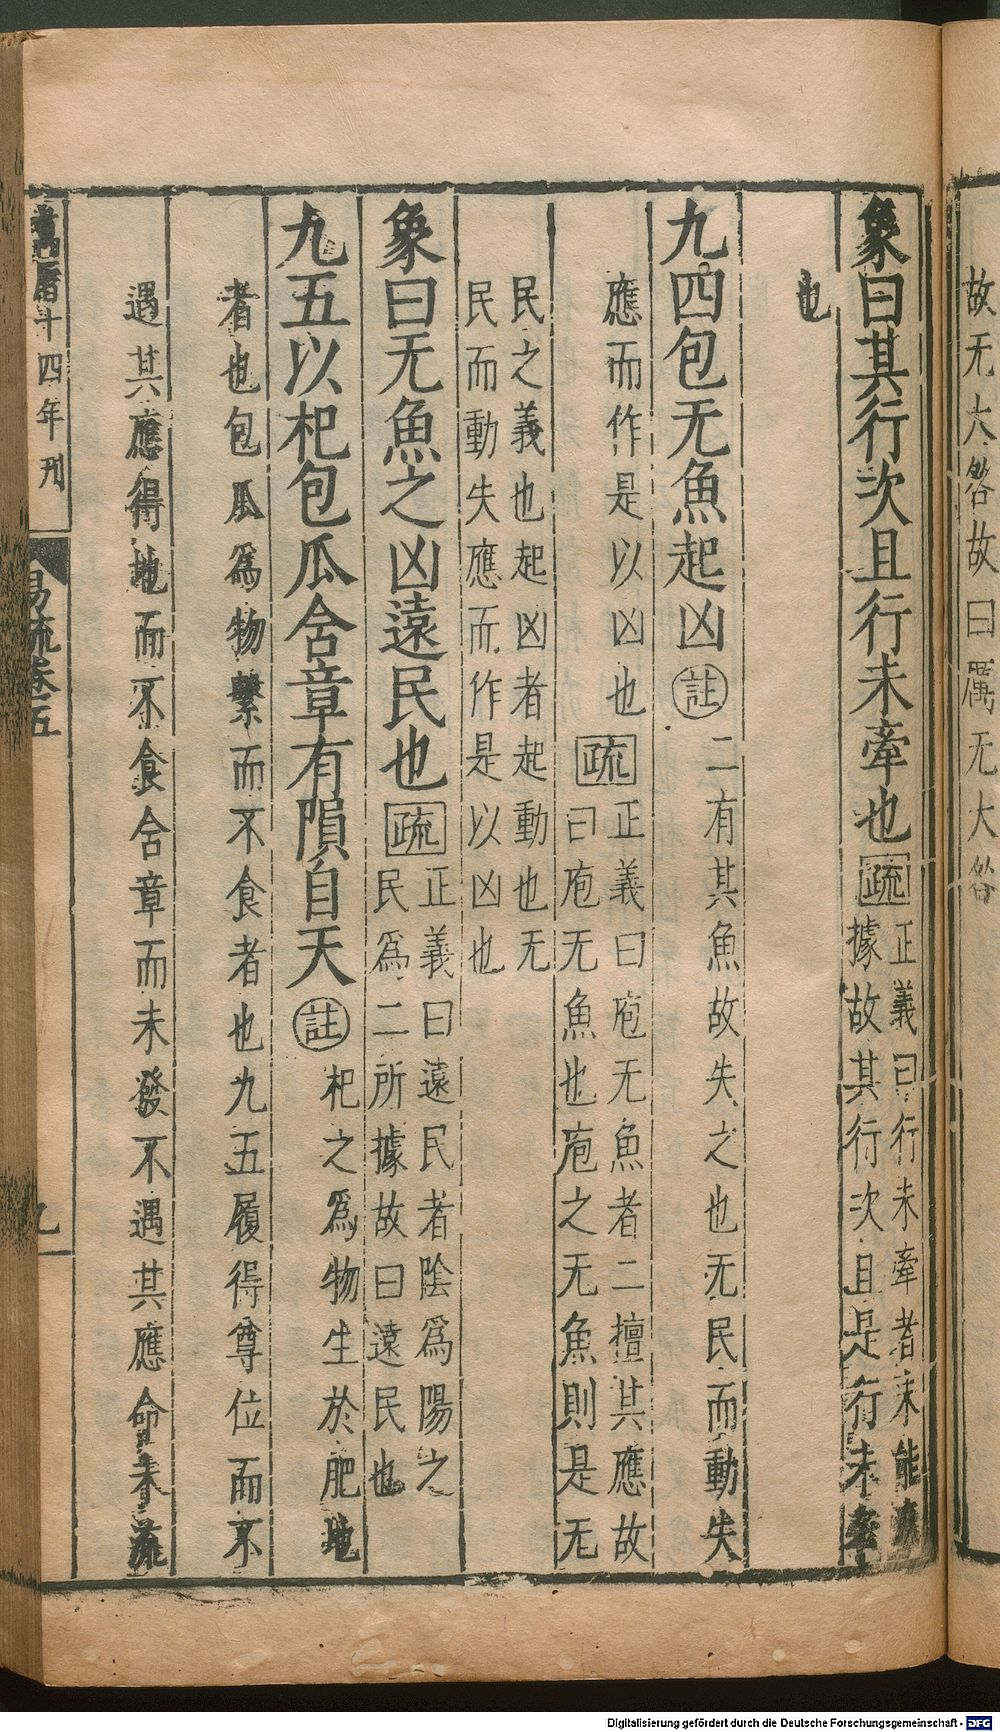 故无大咎故曰厲无大咎
象曰其行次且行未牽也疏正義曰行未牽者未能
據故其行次且是行未牽
也
九四包无魚起凶註二有其魚故失之也无民而動失
應而作是以凶也疏正義曰庖无魚者二擅其應故
曰庖无魚也庖之无魚則是无
民之義也起凶者起動也无
民而動失應而作是以凶也
象曰无魚之凶遠民也疏正義曰遠民者陰爲陽之
民爲二所據故曰遠民也
九五以杞包瓜含章有隕自天註杞之爲物生於肥地
者也包瓜爲物繫而不食者也九五履得尊位而不
遇其應得地而不食含章而未發不遇其應命未流
十四年刊
易疏卷五
九
Digitalisierung gefördert durch die Deutsche Forschungsgemeinschaft - DFG